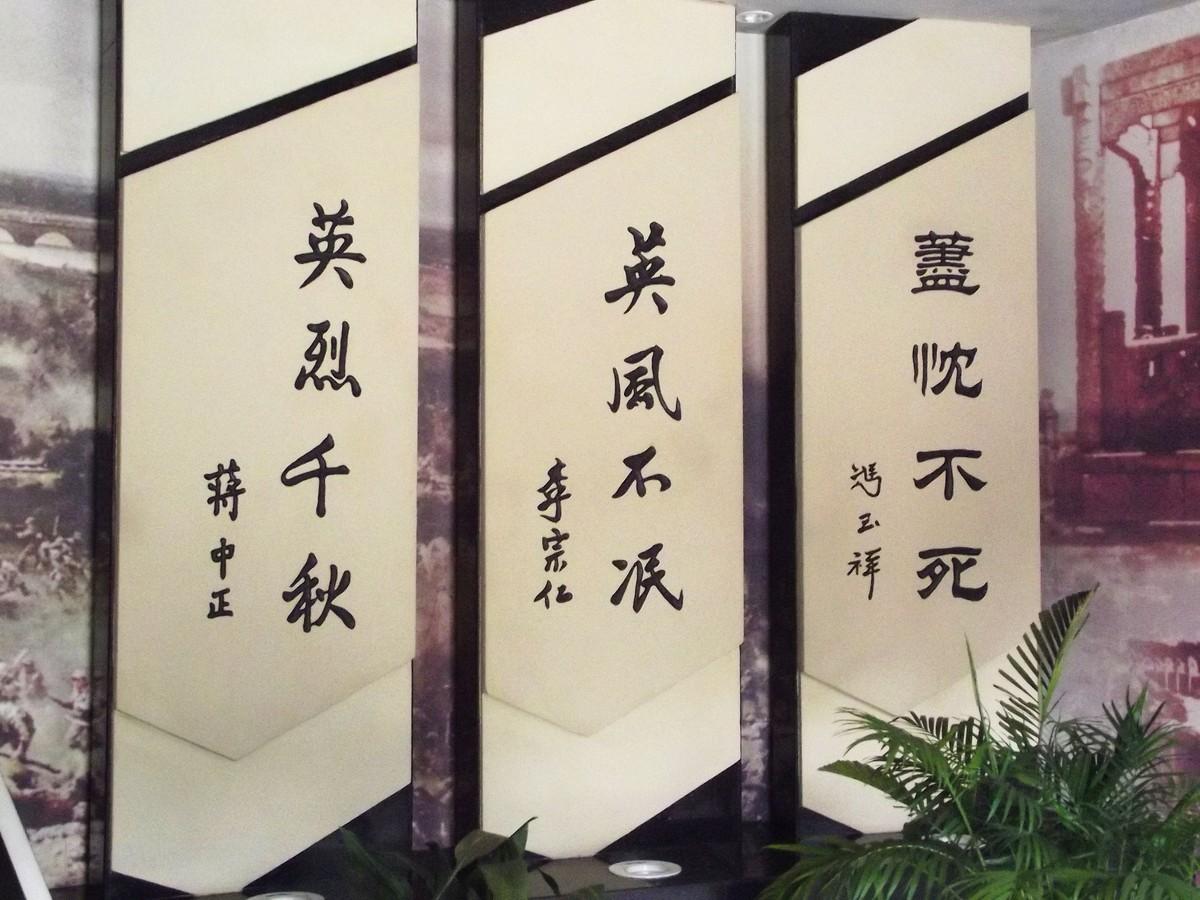 英烈千秋
蔣中正
英風不泯
李宗仁
藎忱不死
馮玉祥